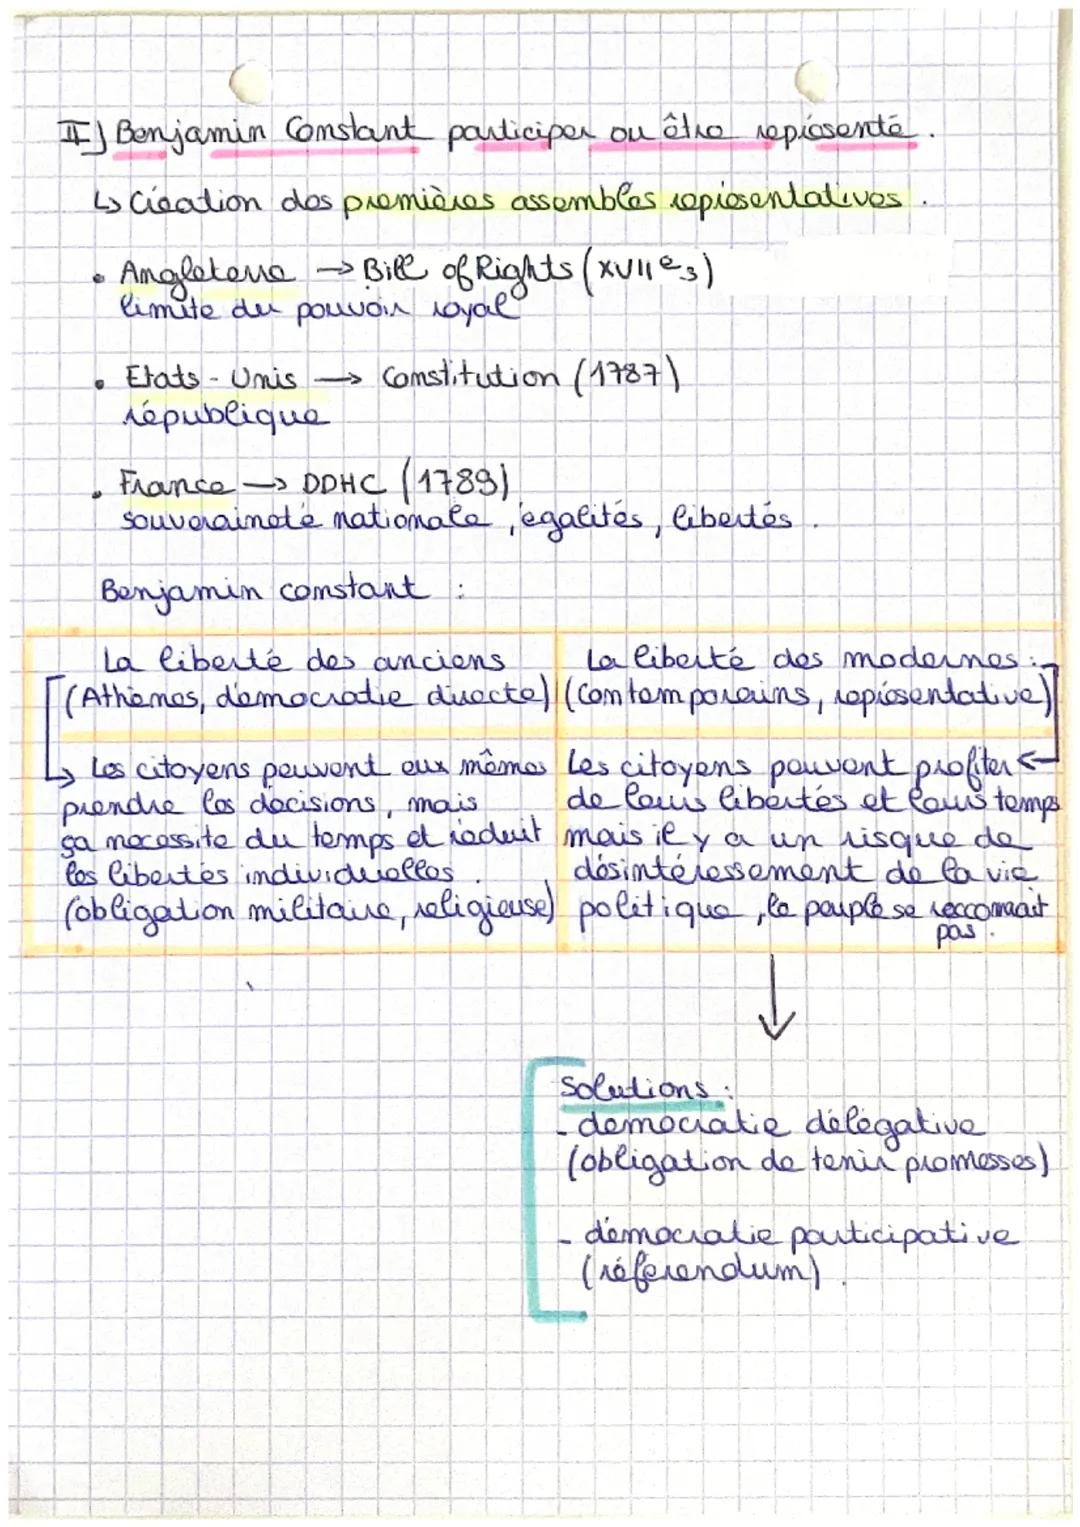 II) Benjamin Constant participer ou être représenté.
↳ Création des premières assembles représentatives.
• Angleterre → Bill of Rights (XVII e s)
limite du pouvoir royal
• Etats-Unis → Constitution (1787)
république
• France → DDHC (1789)
souveraineté nationale, égalités, libertés.
Benjamin constant :
La liberté des anciens
(Athènes, démocratie directe)
↳ Les citoyens peuvent eux mêmes
prendre les décisions, mais
ça necessite du temps et réduit
les libertés individuelles.
(obligation militaire, religieuse)
La liberté des modernes :
(Contemporains, représentative)
Les citoyens peuvent profiter
de leurs libertés et leurs temps
mais il y a un risque de
désintéressement de la vie
politique, le peuple se reconnait
pas.
Solutions :
- démocratie délégative
(obligation de tenir promesses)
- démocratie participative
(référendum).